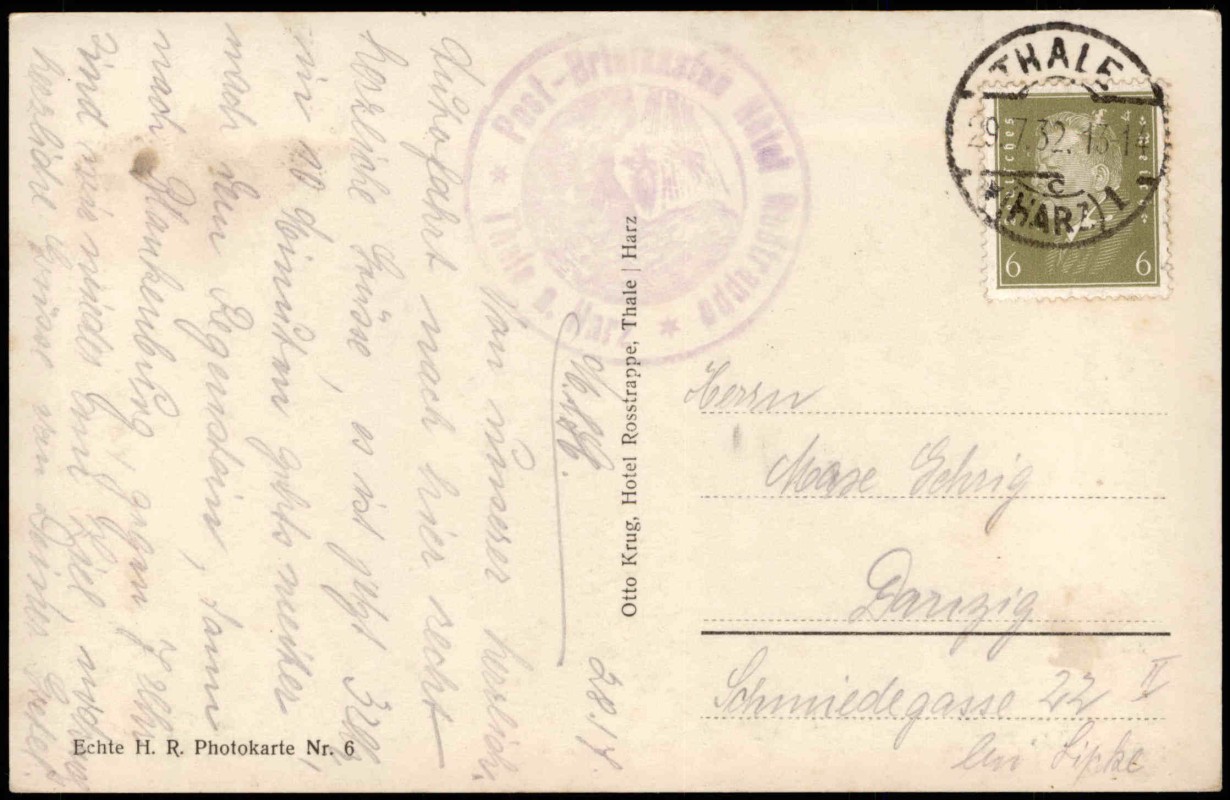 Post-Briefkasten Hotel Roßtrappe
* Thale a. Harz *
THALE
29.7.32.13-14
* (HARZ) 1
c
Deutsches Reich
6 6
28./7.
Von unserer herrlich.
Autofahrt nach hier recht
herzliche Grüße, es ist jetzt
in 10 Minuten gehts weiter,
nach dem Regenstein, dann
nach Blankenburg gegen 7 Uhr
sind wir wieder am Ziel nochmals
herzliche Grüsse von Deiner
Otto Krug, Hotel Rosstrappe, Thale | Harz
Herrn
Max Gehrig
Danzig
Schmiedegasse 22 II
bei Lipke
Echte H. R. Photokarte Nr. 6